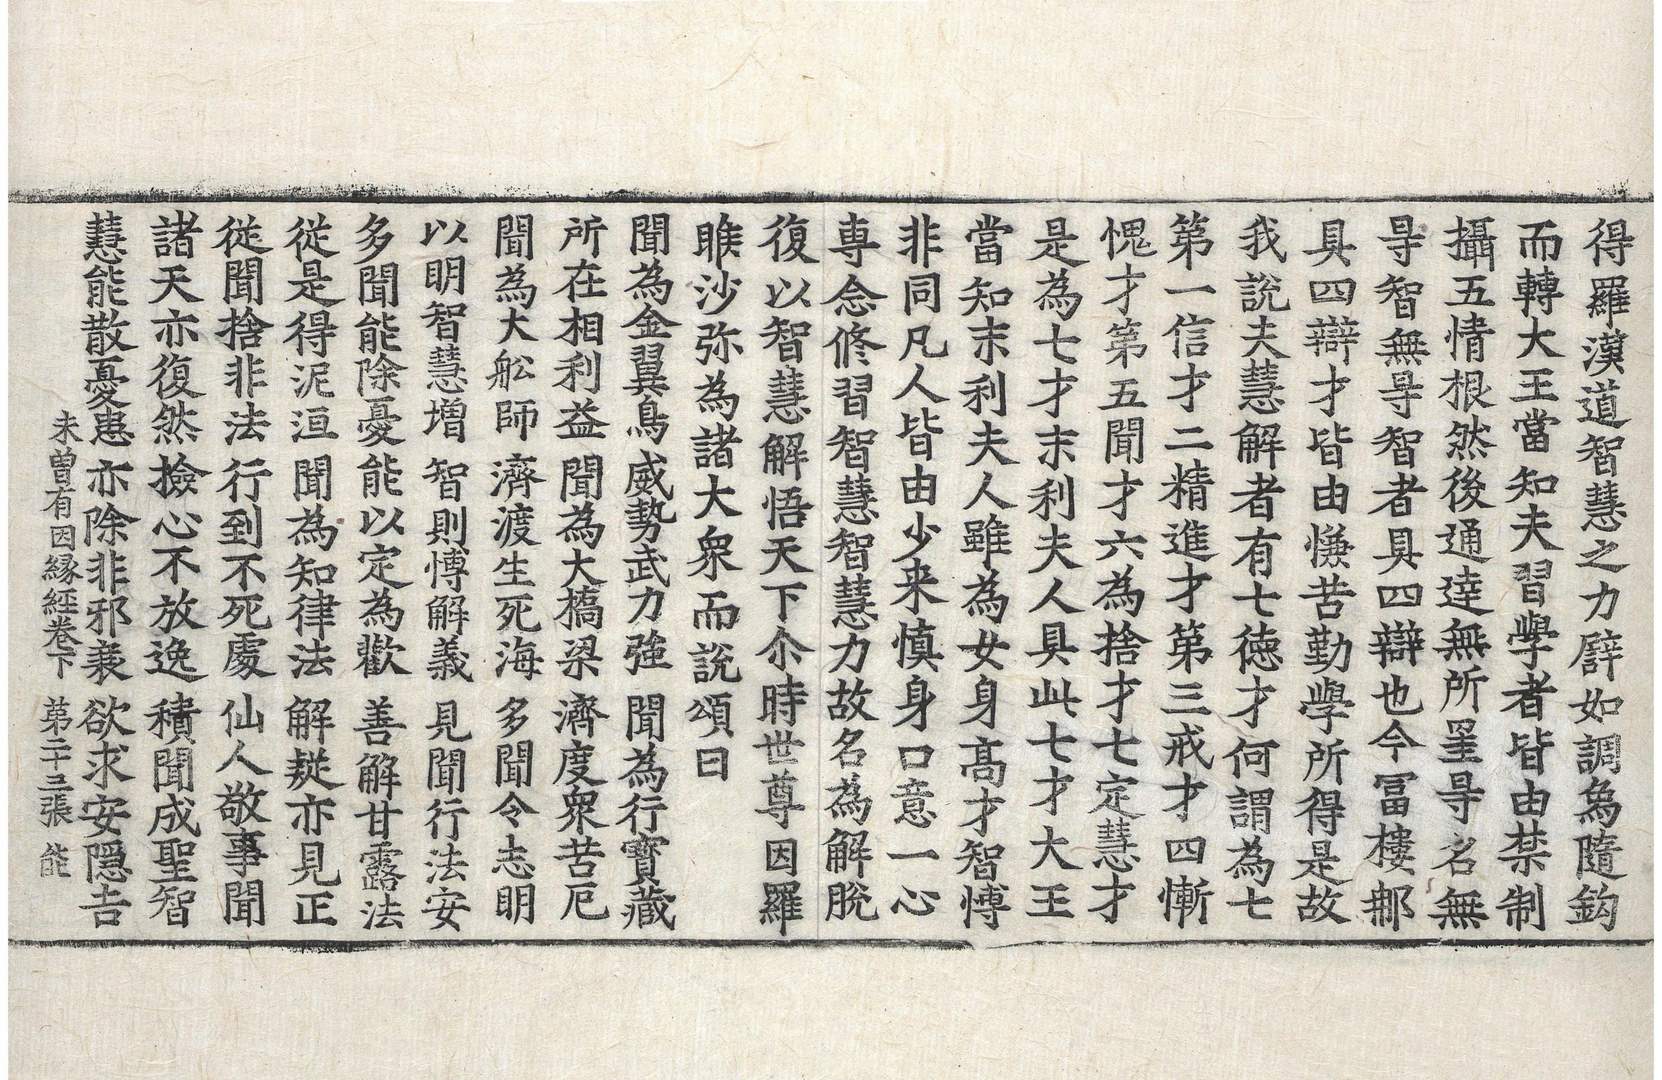 得羅漢道智慧之力譬如調為隨鈎
而轉大王當知夫習學者皆由禁制
攝五情根然後通達無所罣㝵名無
㝵智無㝵智者具四辯才也今冨樓那
具四辯才皆由慊苦勤學所得是故
我說夫慧解者有七德才何謂為七
第一信才二精進才第三戒才四慚
愧才第五聞才六為捨才七定慧才
是為七才末利夫人具此七才大王
當知末利夫人雖為女身高才智博
非同凡人皆由少来慎身口意一心
專念修習智慧智慧力故名為解脫
復以智慧解悟天下尒時世尊因羅
睺沙弥為諸大衆而說頌曰
聞為金翼鳥 威勢武力強 聞為行寶藏
所在相利益 聞為大橋梁 濟度衆苦厄
聞為大舩師 濟渡生死海 多聞令志明
以明智慧增 智則博解義 見聞行法安
多聞能除憂 能以定為歡 善解甘露法
從是得泥洹 聞為知律法 解疑亦見正
從聞捨非法 行到不死處 仙人敬事聞
諸天亦復然 撿心不放逸 積聞成聖智
慧能散憂恚 亦除非邪衰 欲求安隱吉
未曾有因緣經卷下 第二十三張 能